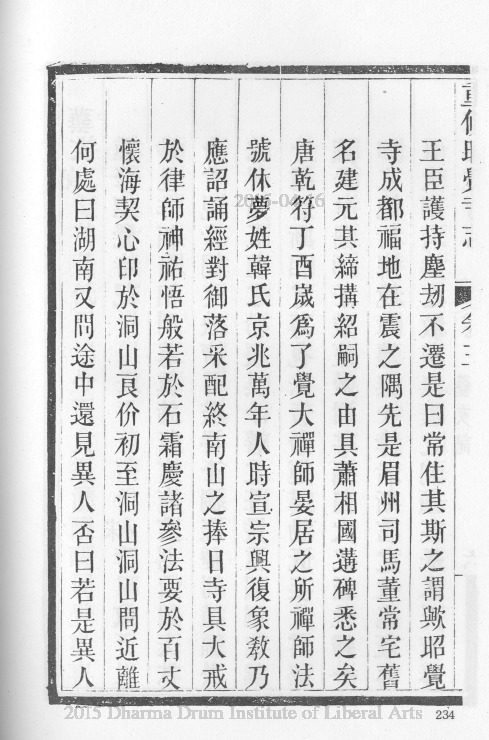 王臣護持塵刼不遷是曰常住其斯之謂歟昭覺
寺成都福地在震之隅先是眉州司馬董常宅舊
名建元其締搆紹嗣之由具蕭相國遘碑悉之矣
唐乾符丁酉歲爲了覺大禪師晏居之所禪師法
號休夢姓韓氏京兆萬年人時宣宗興復象教乃
應詔誦經對御落采配終南山之捧日寺具大戒
於律師神祐悟般若於石霜慶諸參法要於百丈
懷海契心印於洞山良价初至洞山洞山問近離
何處曰湖南又問途中還見異人否曰若是異人
2015 Dharma Drum Institute of Liberal Arts
234